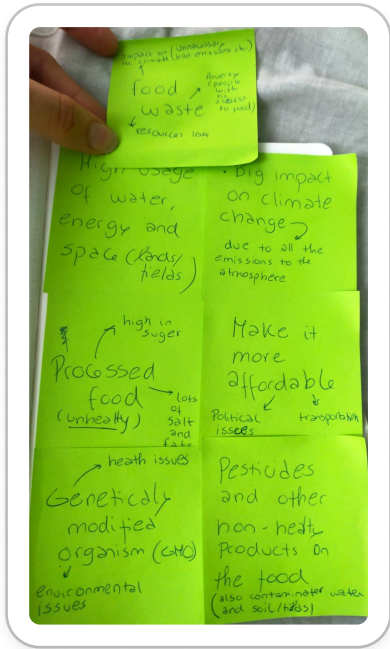 impact on (unnecessary
the climate gas emissions etc)
food
waste
Poverty
(people
with
no
access
to food)
resources loss
High usage
of water,
energy and
space (lands/
fields)
• Big impact
on climate
change
due to all the
emissions to the
atmosphere
high in
suger
Processed
food
(unhealty)
lots
of
salt
and
fats
Make it
more
affordable
Political
issues
transportation
heath issues
Geneticaly
modified
organism (GMO)
environmental
issues
Pesticides
and other
non-healty
Products on
the food
(also contaminater water
and soil/fields)